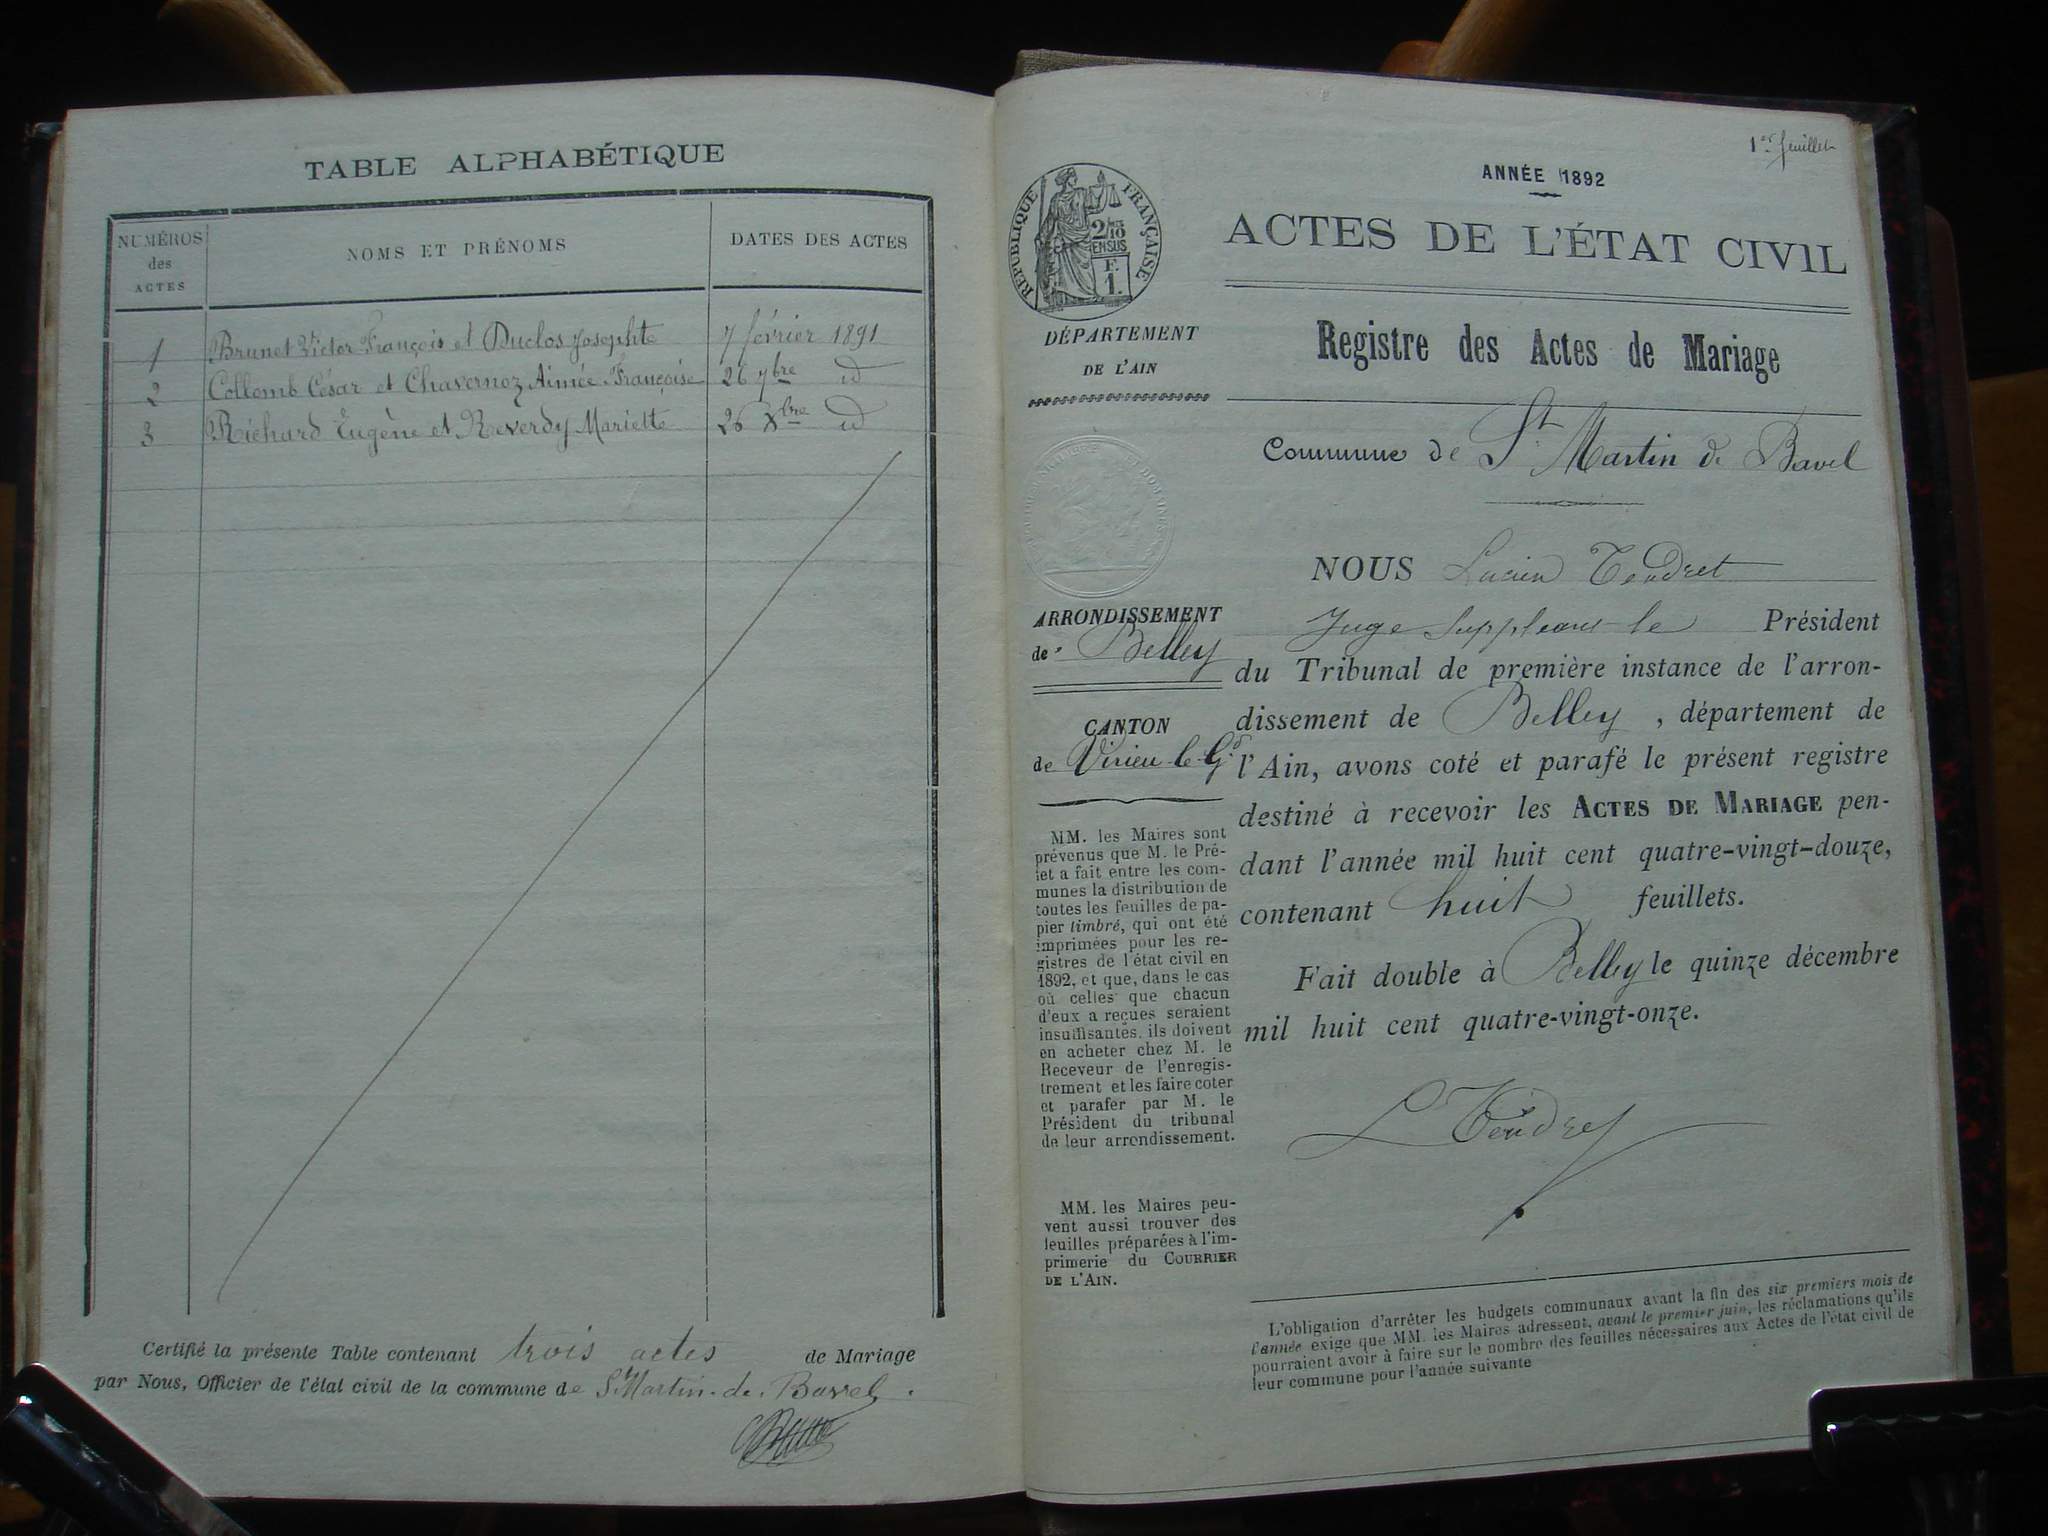 TABLE ALPHABÉTIQUE
NUMÉROS
des
ACTES
NOMS ET PRÉNOMS
DATES DES ACTES
1 Brunet Victor François et Duclos Josephte 7 février 1891
2 Collomb César et Chavernoz Aimée Françoise 26 7bre id
3 Richard Eugène et Reverdy Mariette 26 Xbre id
Certifié la présente Table contenant trois actes de Mariage
par Nous, Officier de l'état civil de la commune de St Martin-de-Bavel.
1er feuillet
ANNÉE 1892
ACTES DE L'ÉTAT CIVIL
RÉPUBLIQUE FRANÇAISE
2/10
EN SUS
F.
1.
DÉPARTEMENT
DE L'AIN
Registre des Actes de Mariage
Commune de St Martin de Bavel
ARRONDISSEMENT
de Belley
CANTON
de Virieu-le-Gd
MM. les Maires sont
prévenus que M. le Pré-
fet a fait entre les com-
munes la distribution de
toutes les feuilles de pa-
pier timbré, qui ont été
imprimées pour les re-
gistres de l'état civil en
1892, et que, dans le cas
où celles que chacun
d'eux a reçues seraient
insuffisantes, ils doivent
en acheter chez M. le
Receveur de l'enregis-
trement et les faire coter
et parafer par M. le
Président du tribunal
de leur arrondissement.
MM. les Maires peu-
vent aussi trouver des
feuilles préparées à l'im-
primerie du COURRIER
DE L'AIN.
NOUS Lucien Tendret
Juge Suppléant le Président
du Tribunal de première instance de l'arron-
dissement de Belley, département de
l'Ain, avons coté et parafé le présent registre
destiné à recevoir les ACTES DE MARIAGE pen-
dant l'année mil huit cent quatre-vingt-douze,
contenant huit feuillets.
Fait double à Belley le quinze décembre
mil huit cent quatre-vingt-onze.
L Tendret
L'obligation d'arrêter les budgets communaux avant la fin des six premiers mois de
l'année exige que MM. les Maires adressent, avant le premier juin, les réclamations qu'ils
pourraient avoir à faire sur le nombre des feuilles nécessaires aux Actes de l'état civil de
leur commune pour l'année suivante